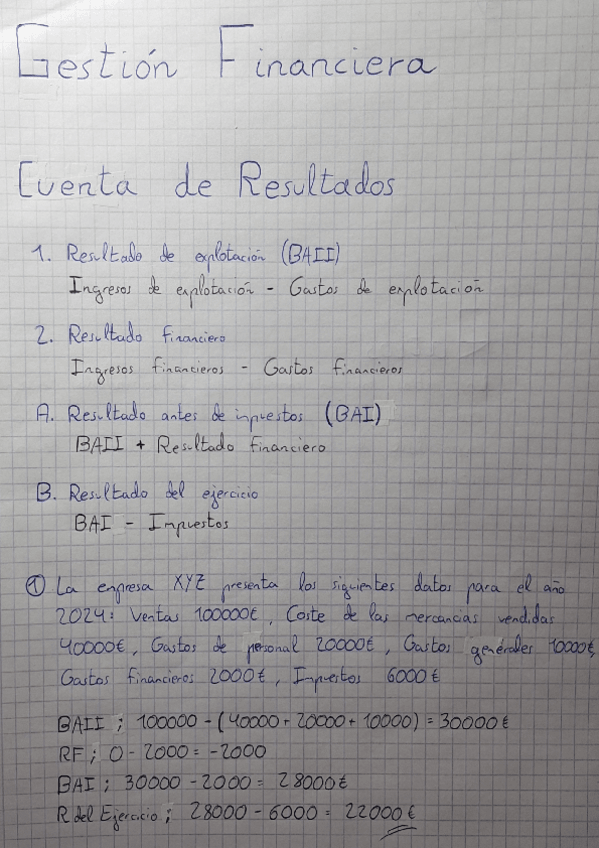 Gestión Financiera
Cuenta de Resultados
1. Resultado de explotación (BAII)
Ingresos de explotación - Gastos de explotación
2. Resultado financiero
Ingresos financieros - Gastos financieros
A. Resultado antes de inpuestos (BAI)
BAII + Resultado financiero
B. Resultado del ejercicio
BAI - Impuestos
① La enpresa XYZ presenta los siguientes datos para el año
2024: Ventas 100000€, Coste de las mercancias vendidas
40000€, Gastos de personal 20000€, Gastos genérales 10000€,
Gastos financieros 2000€, Inpuestos 6000€
BAII ; 100000 - (40000 + 20000 + 10000) = 30000€
RF ; 0 - 2000 = -2000
BAI ; 30000 - 2000 = 28000€
R del Ejercicio ; 28000 - 6000 = 22000€